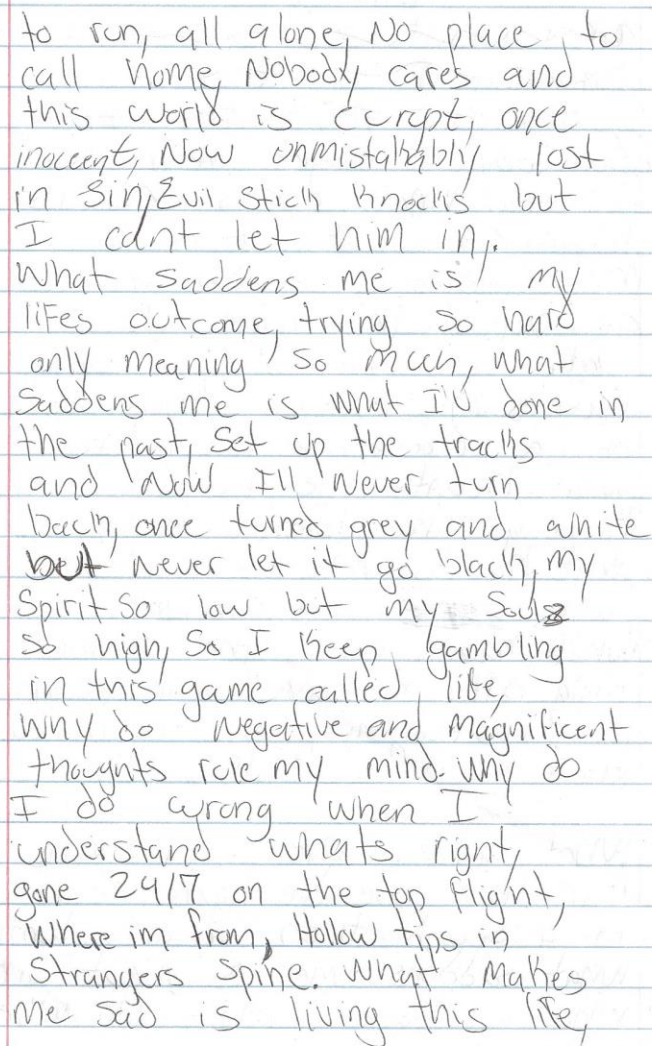 to run, all alone, No place, to
call home, Nobody cares and
this world is curupt, once
inoccent, Now unmistakably lost
in sin, Evil stick knocks but
I cant let him in,.
What saddens me is my
lifes outcome, trying so hard
only meaning so much, what
saddens me is what I'v done in
the past, Set up the tracks
and Now I'll Never turn
back, once turned grey and white
but Never let it go black, my
Spirit so low but my Souls
so high, So I keep gambling
in this game called life,
why do Negative and magnificent
thoughts rule my mind. Why do
I do wrong when I
understand whats right,
gone 24/7 on the top flight,
Where im from, Hollow tips in
Strangers spine. What makes
me sad is living this life,